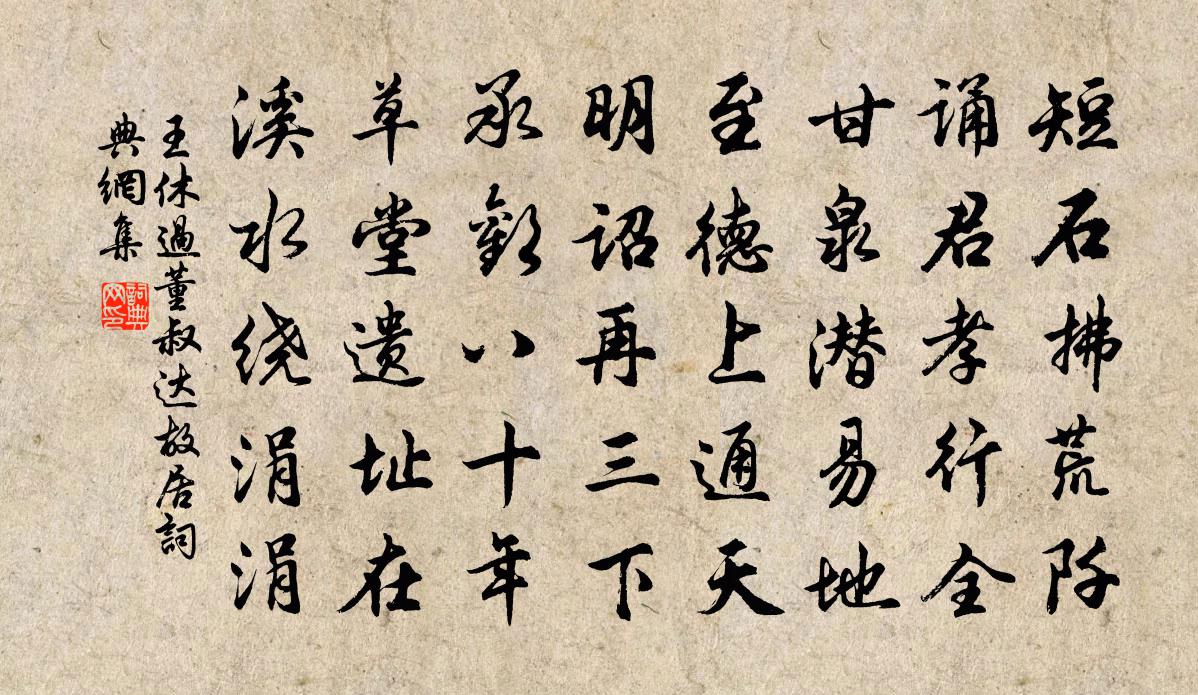 短石拂荒阡
诵君孝行全
甘泉潜易地
至德上通天
明诏再三下
承歡八十年
草堂遗址在
溪水绕涓涓
王休過董叔达故居詞
典網集
詞典
网印